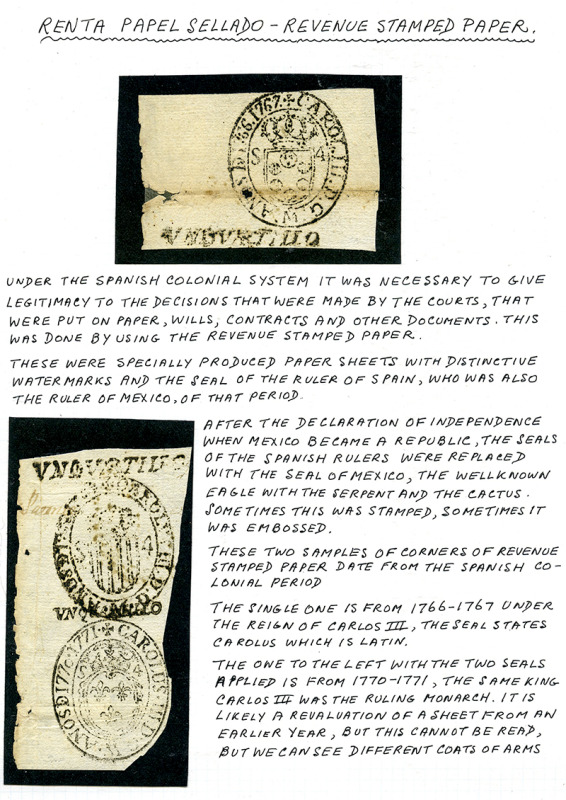 RENTA PAPEL SELLADO – REVENUE STAMPED PAPER.
✠ CAROL.III.D.G. M. ANOS D 1766.1767.
S 4
VNQVARTILLO
UNDER THE SPANISH COLONIAL SYSTEM IT WAS NECESSARY TO GIVE
LEGITIMACY TO THE DECISIONS THAT WERE MADE BY THE COURTS, THAT
WERE PUT ON PAPER, WILLS, CONTRACTS AND OTHER DOCUMENTS. THIS
WAS DONE BY USING THE REVENUE STAMPED PAPER.
THESE WERE SPECIALLY PRODUCED PAPER SHEETS WITH DISTINCTIVE
WATERMARKS AND THE SEAL OF THE RULER OF SPAIN, WHO WAS ALSO
THE RULER OF MEXICO, OF THAT PERIOD.
VNQVARTILLO
S 4
VNQVARTILLO
✠ CAROLUS.III.D. ANOS D 1770.1771.
AFTER THE DECLARATION OF INDEPENDENCE
WHEN MEXICO BECAME A REPUBLIC, THE SEALS
OF THE SPANISH RULERS WERE REPLACED
WITH THE SEAL OF MEXICO, THE WELLKNOWN
EAGLE WITH THE SERPENT AND THE CACTUS.
SOMETIMES THIS WAS STAMPED, SOMETIMES IT
WAS EMBOSSED.
THESE TWO SAMPLES OF CORNERS OF REVENUE
STAMPED PAPER DATE FROM THE SPANISH CO-
LONIAL PERIOD
THE SINGLE ONE IS FROM 1766-1767 UNDER
THE REIGN OF CARLOS III, THE SEAL STATES
CAROLUS WHICH IS LATIN.
THE ONE TO THE LEFT WITH THE TWO SEALS
APPLIED IS FROM 1770-1771, THE SAME KING
CARLOS III WAS THE RULING MONARCH. IT IS
LIKELY A REVALUATION OF A SHEET FROM AN
EARLIER YEAR, BUT THIS CANNOT BE READ,
BUT WE CAN SEE DIFFERENT COATS OF ARMS